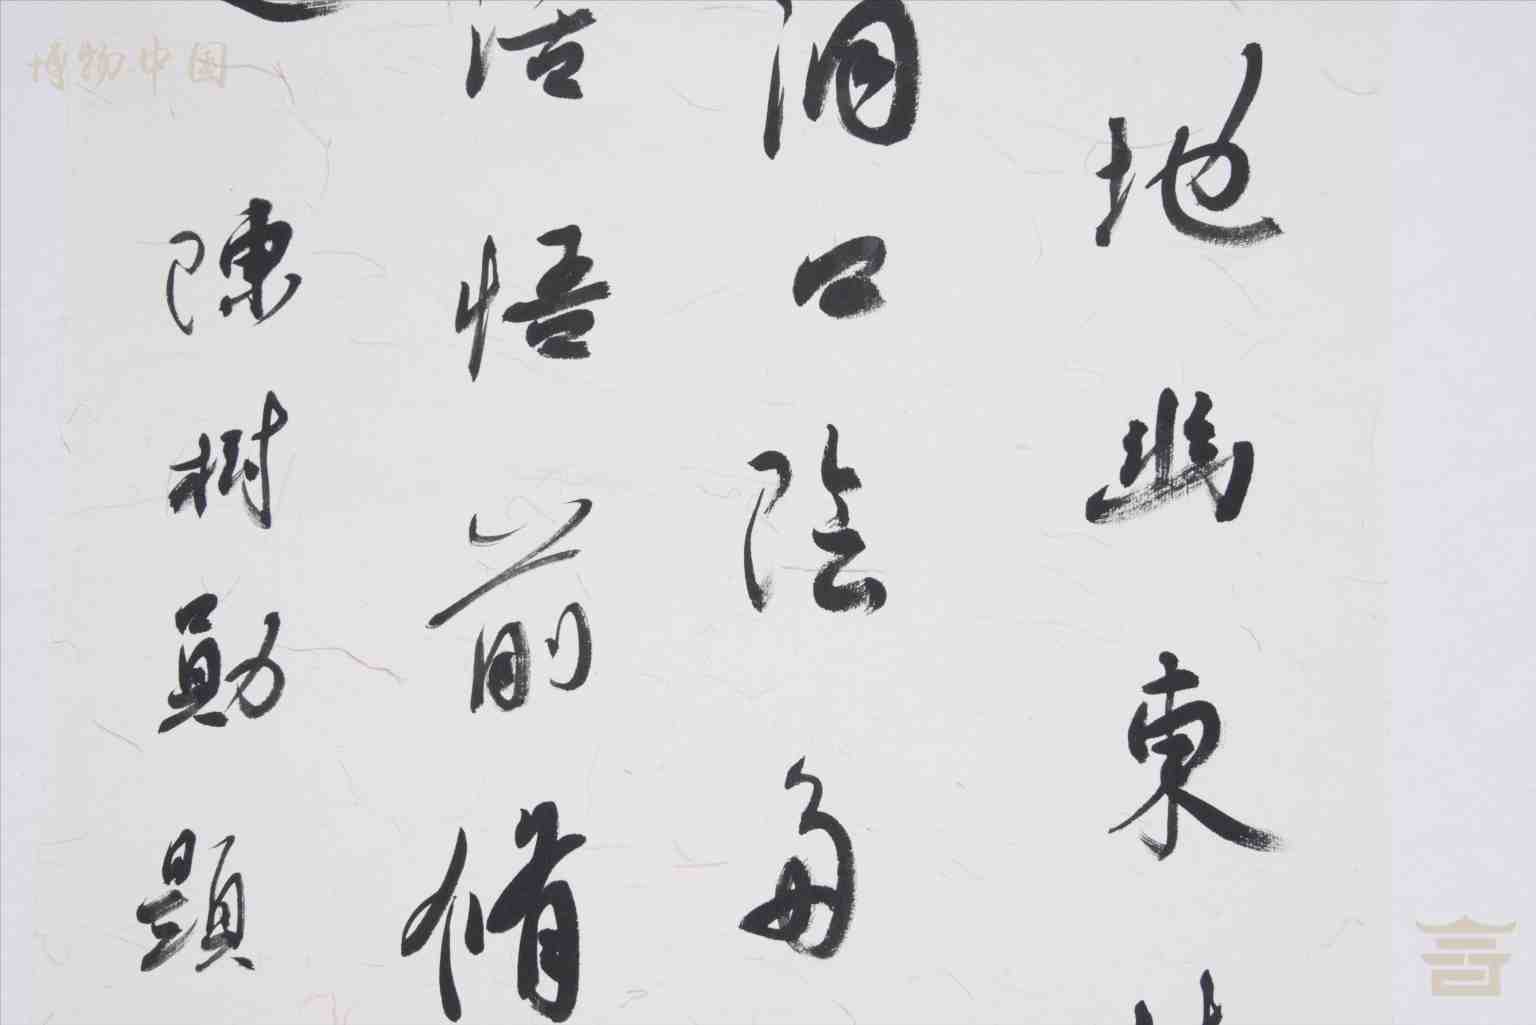 地幽東
洞口陰多
活悟前脩
陳樹勛題
博物中国